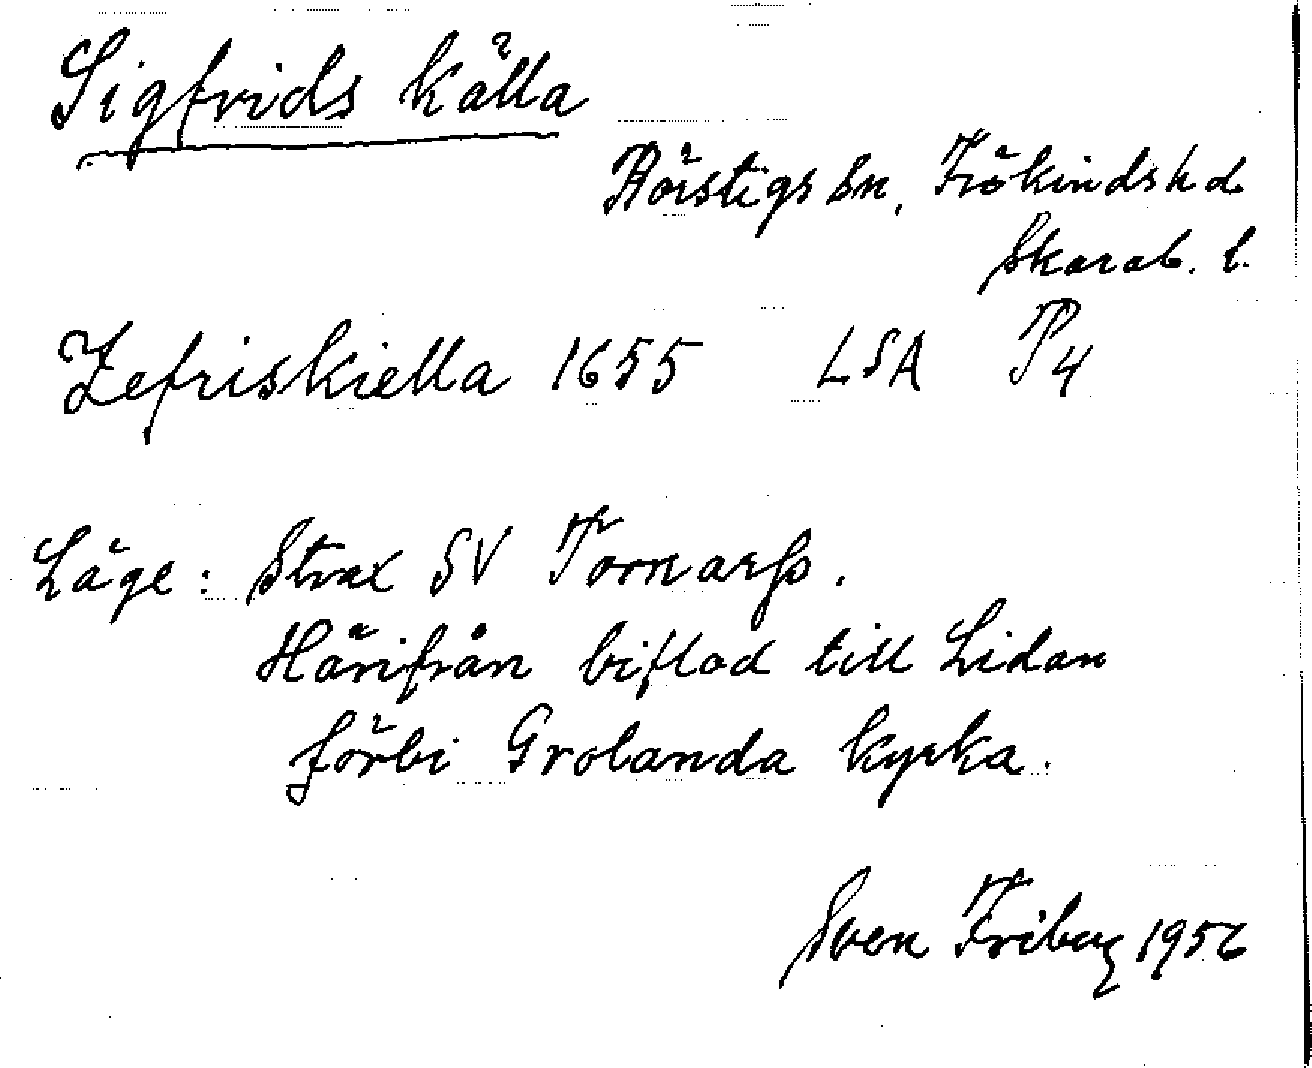 Sigfrids källa
Börstigs sn, Frökinds hd
Skarab. l.
Zefriskiella 1655 LSA P4
Läge: Strax SV Tornarp.
Härifrån biflod till Lidan
förbi Grolanda kyrka.
Sven Friberg 1956